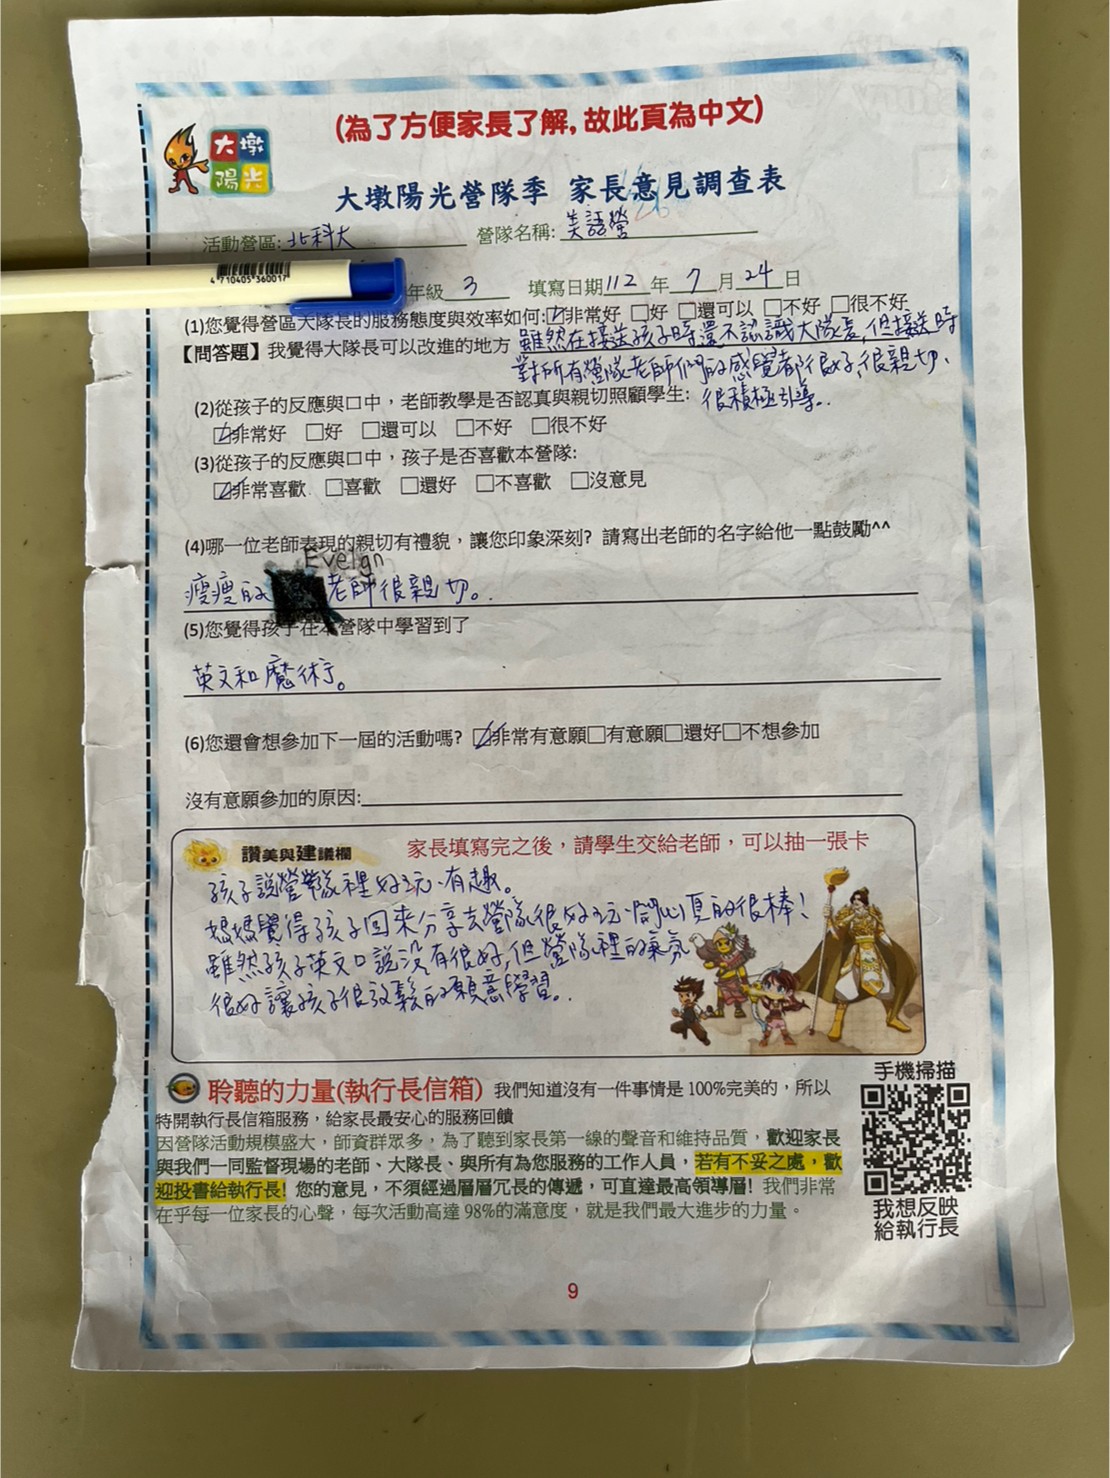 (為了方便家長了解, 故此頁為中文)
大墩陽光
大墩陽光營隊季 家長意見調查表
活動營區: 北科大 營隊名稱: 美語營
4 710405 360017
年級 3 填寫日期 112 年 7 月 24 日
(1)您覺得營區大隊長的服務態度與效率如何:☑非常好 □好 □還可以 □不好 □很不好
【問答題】我覺得大隊長可以改進的地方 雖然在接送孩子時還不認識大隊長, 但接送時
對所有營隊老師們的感覺都很好, 很親切、
(2)從孩子的反應與口中，老師教學是否認真與親切照顧學生: 很積極引導。
☑非常好 □好 □還可以 □不好 □很不好
(3)從孩子的反應與口中，孩子是否喜歡本營隊:
☑非常喜歡 □喜歡 □還好 □不喜歡 □沒意見
(4)哪一位老師表現的親切有禮貌，讓您印象深刻? 請寫出老師的名字給他一點鼓勵^^
Evelyn
瘦瘦的 老師很親切。
(5)您覺得孩子在本營隊中學習到了
英文和魔術。
(6)您還會想參加下一屆的活動嗎? ☑非常有意願□有意願□還好□不想參加
沒有意願參加的原因:
讚美與建議欄 家長填寫完之後，請學生交給老師，可以抽一張卡
孩子說營隊裡好玩、有趣。
媽媽覺得孩子回來分享去營隊很好玩、開心真的很棒!
雖然孩子英文口說沒有很好, 但營隊裡的氣氛
很好讓孩子很放鬆的願意學習。
聆聽的力量(執行長信箱) 我們知道沒有一件事情是 100%完美的，所以
特開執行長信箱服務，給家長最安心的服務回饋
因營隊活動規模盛大，師資群眾多，為了聽到家長第一線的聲音和維持品質，歡迎家長
與我們一同監督現場的老師、大隊長、與所有為您服務的工作人員，若有不妥之處，歡
迎投書給執行長! 您的意見，不須經過層層冗長的傳遞，可直達最高領導層! 我們非常
在乎每一位家長的心聲，每次活動高達 98%的滿意度，就是我們最大進步的力量。
手機掃描
我想反映
給執行長
9